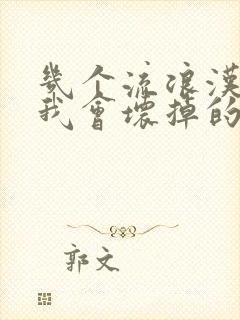 幾个流浪漢
我會壞掉的
郭文